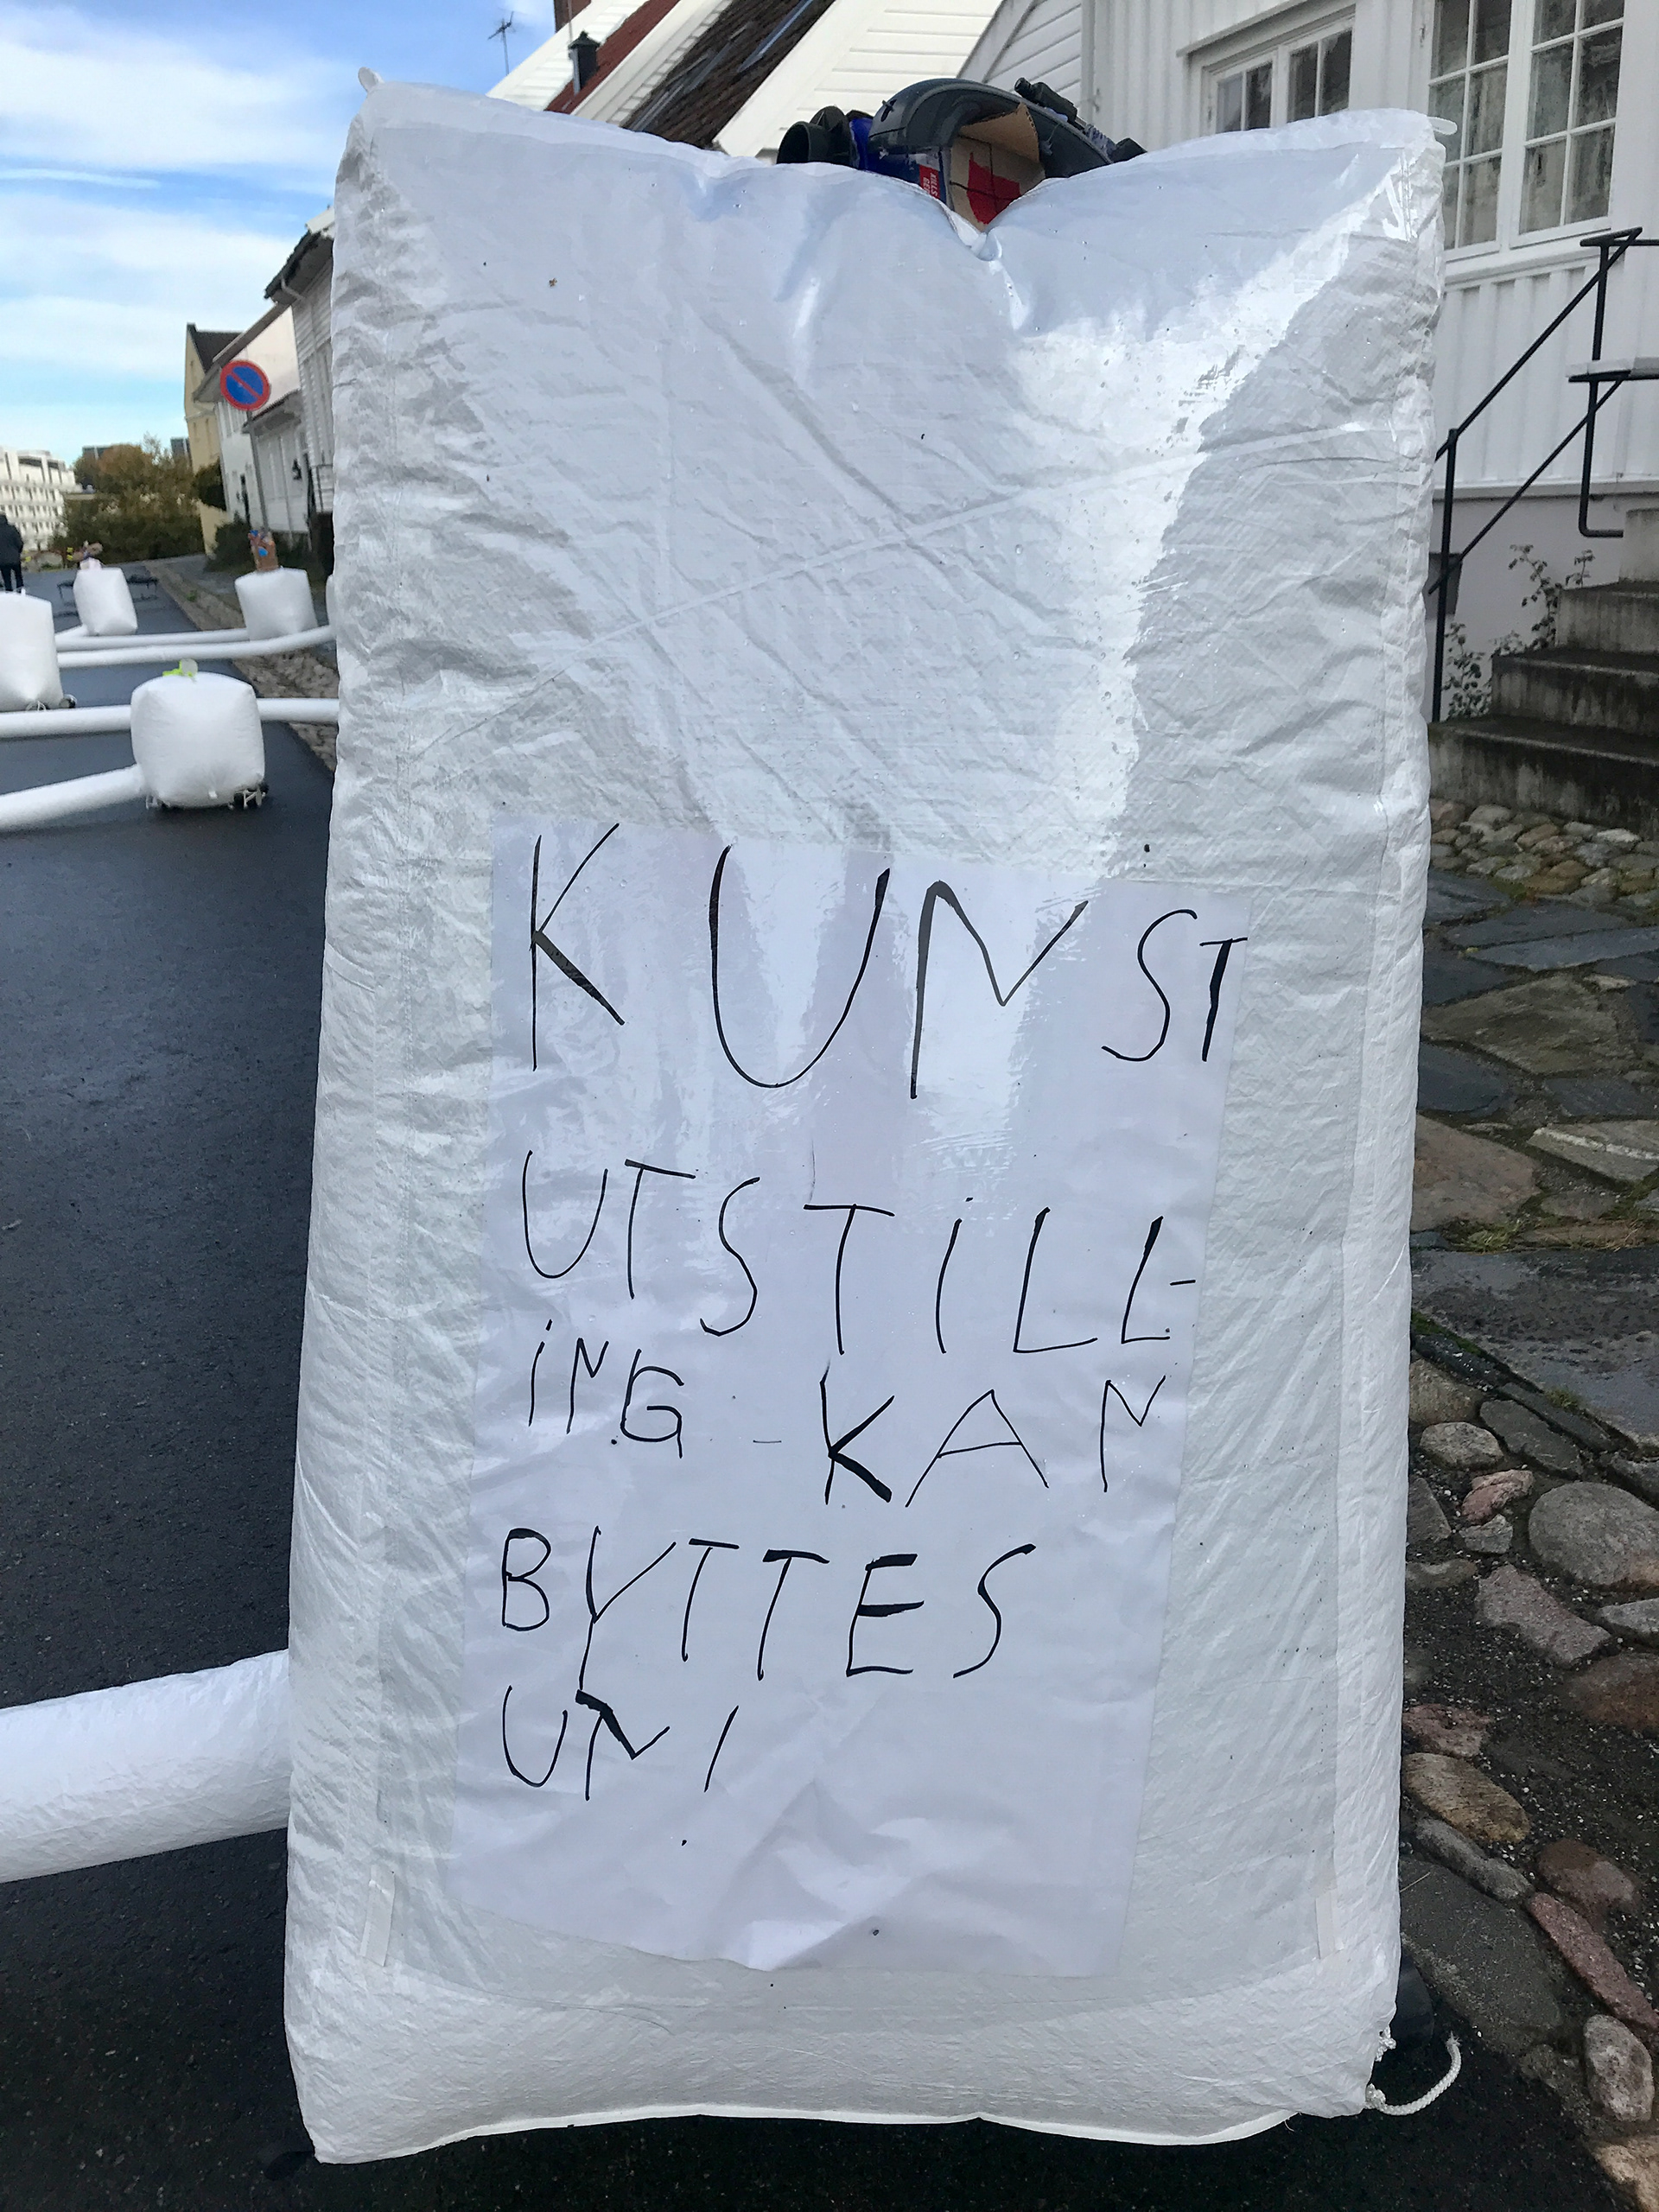 KUNST
UTSTiLL-
iNG - KAN
BYTTES
UN!